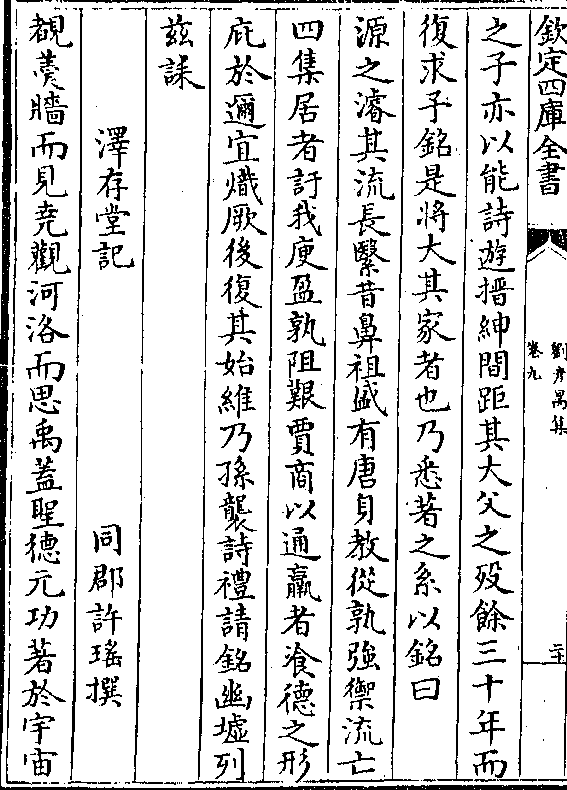 欽定四庫全書
劉彥昺集
卷九
二十
之子亦以能詩遊搢紳間距其大父之歿餘三十年而
復求予銘是將大其家者也乃悉著之系以銘曰
源之濬其流長繄昔鼻祖盛有唐身教從孰強禦流亡
四集居者訏我庾盈孰阻艱賈商以通羸者飡德之形
庇於邇宜熾厥後復其始維乃孫襲詩禮請銘幽墟列
茲誄
澤存堂記
同郡許瑤撰
覩羹牆而見堯觀河洛而思禹蓋聖德元功著於宇宙